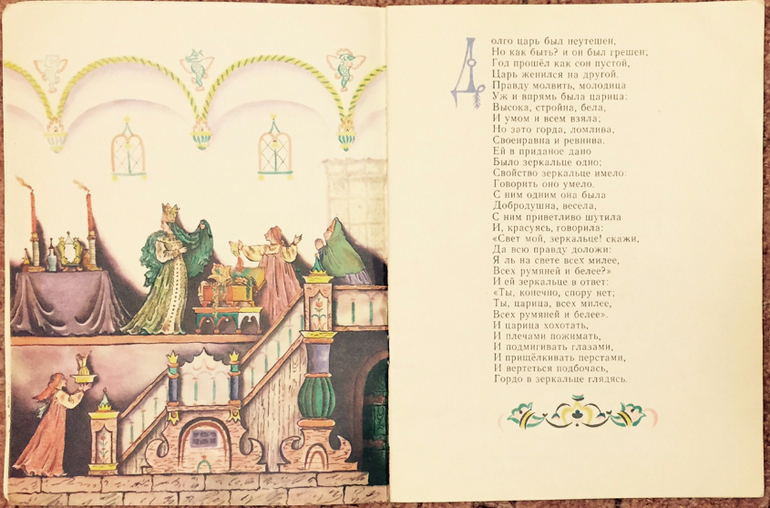 Долго царь был неутешен,
Но как быть? и он был грешен;
Год прошёл как сон пустой,
Царь женился на другой.
Правду молвить, молодица
Уж и впрямь была царица:
Высока, стройна, бела,
И умом и всем взяла;
Но зато горда, ломлива,
Своенравна и ревнива.
Ей в приданое дано
Было зеркальце одно;
Свойство зеркальце имело:
Говорить оно умело.
С ним одним она была
Добродушна, весела,
С ним приветливо шутила
И, красуясь, говорила:
«Свет мой, зеркальце! скажи,
Да всю правду доложи:
Я ль на свете всех милее,
Всех румяней и белее?»
И ей зеркальце в ответ:
«Ты, конечно, спору нет;
Ты, царица, всех милее,
Всех румяней и белее».
И царица хохотать,
И плечами пожимать,
И подмигивать глазами,
И прищёлкивать перстами,
И вертеться подбочась,
Гордо в зеркальце глядясь.